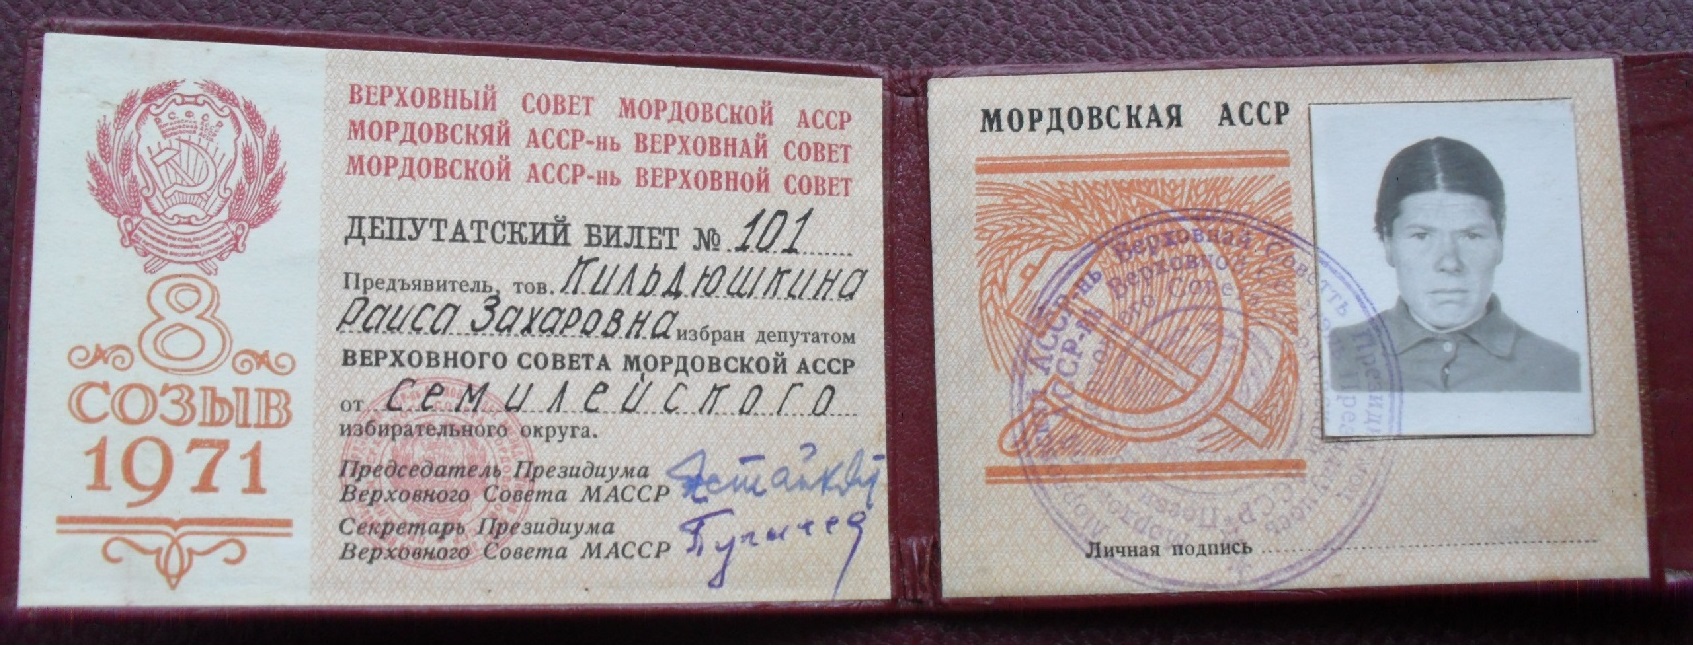 8
СОЗЫВ
1971
ВЕРХОВНЫЙ СОВЕТ МОРДОВСКОЙ АССР
МОРДОВСКЯЙ АССР-нь ВЕРХОВНАЙ СОВЕТ
МОРДОВСКОЙ АССР-нь ВЕРХОВНОЙ СОВЕТ
ДЕПУТАТСКИЙ БИЛЕТ № 101
Предъявитель, тов. Кильдюшкина
Раиса Захаровна избран депутатом
ВЕРХОВНОГО СОВЕТА МОРДОВСКОЙ АССР
от Семилейского
избирательного округа.
Председатель Президиума
Верховного Совета МАССР
Секретарь Президиума
Верховного Совета МАССР
МОРДОВСКАЯ АССР
АССР-нь Верховнай Советть
АССР-нь Верховной
Личная подпись